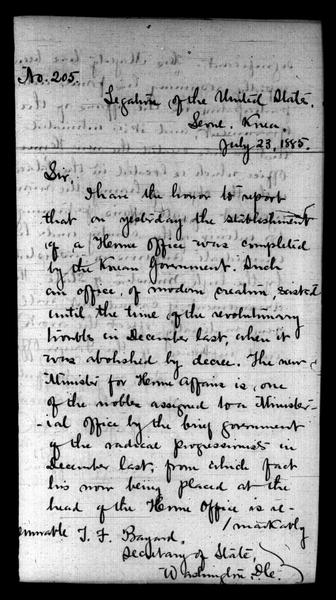 No. 205.
Legation of the United States.
Seoul, Korea.
July 23, 1885.
Sir
I have the honor to report
that on yesterday the establishment
of a Home Office was completed
by the Korean Government. Such
an office, of modern creation, existed
until the time of the revolutionary
troubles in December last, when it
was abolished by decree. The new
Minister for Home Affairs is one
of the nobles assigned to a Minister-
-ial office by the brief government
of the radical progressionists in
December last, from which fact
his now being placed at the
head of the Home Office is re-
/markably
Honorable T. F. Bayard,
Secretary of State,
Washington, D.C.